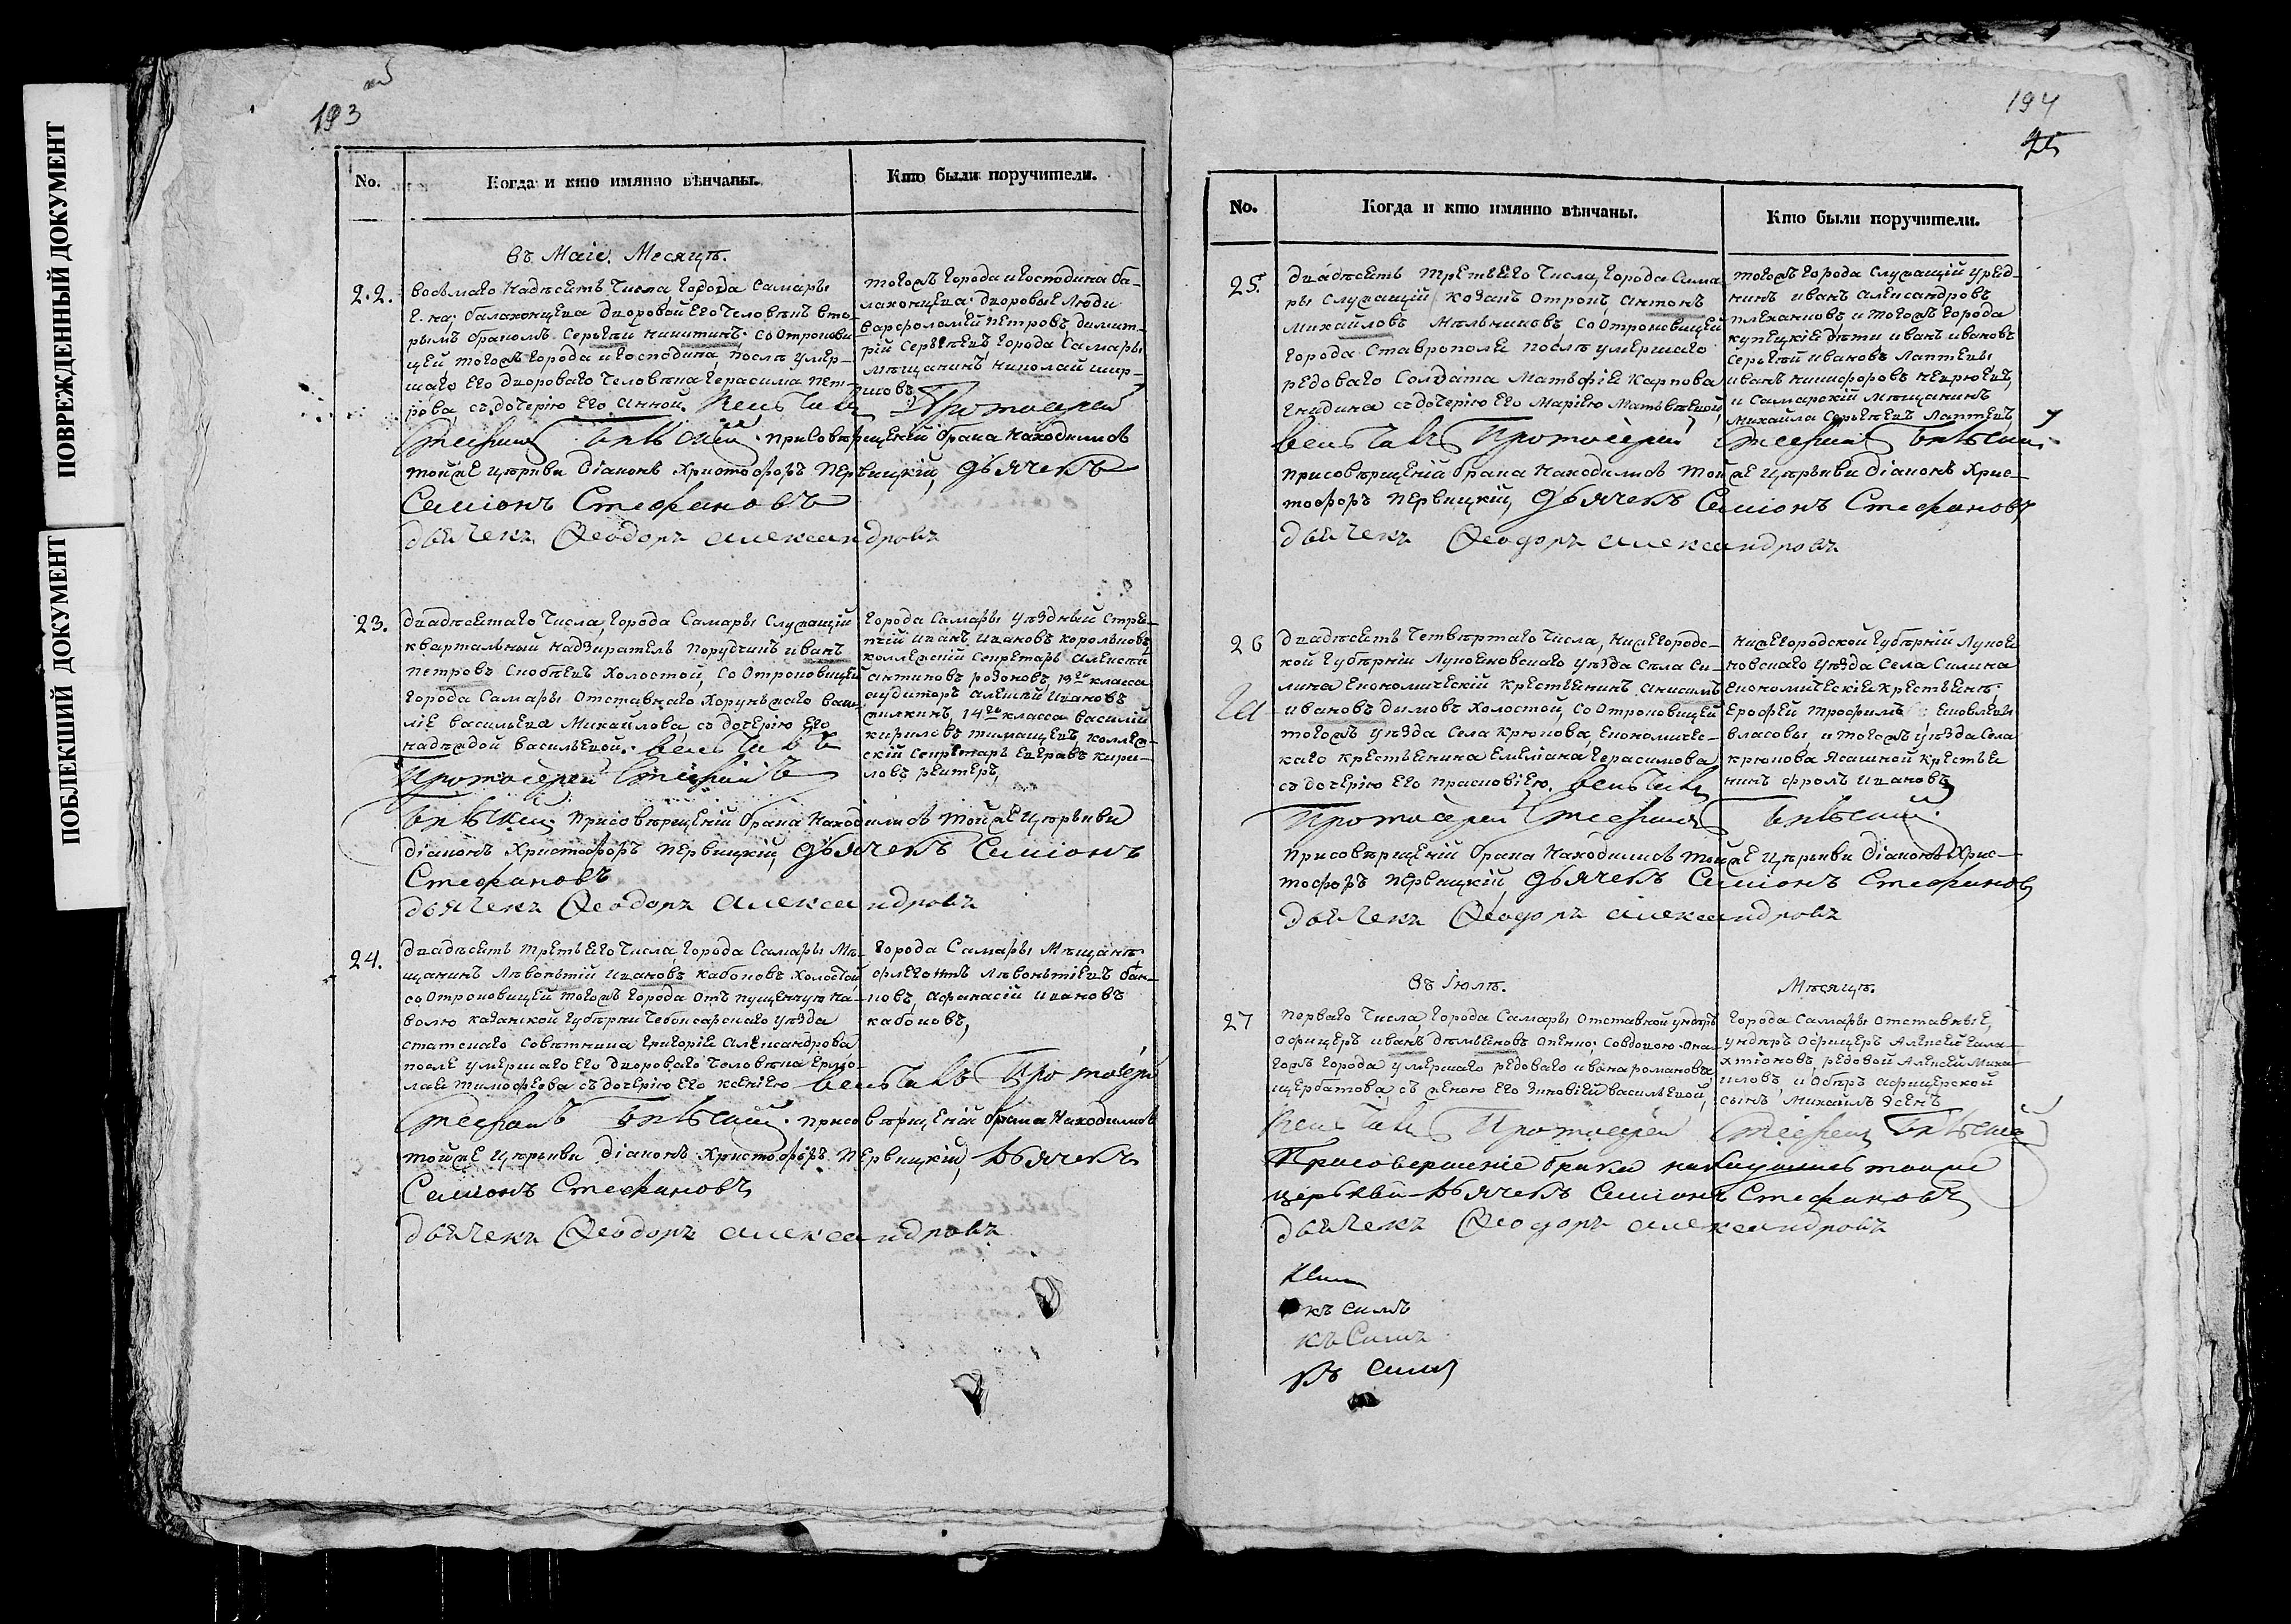 ПОВРЕЖДЕННЫЙ ДОКУМЕНТ
ПОБЛЕКШИЙ ДОКУМЕНТ
193
No.
Когда и кто имянно вѣнчаны.
Кто были поручители.
въ Маіе. Месяцѣ.
22.
восьмаго надѣсеть числа города Самары
Г. на: балахонцева дворовой его человѣкъ вто-
рымъ бракомъ Сергѣй Никитинъ. Со Отрокови
цей тогожъ города и господина, послѣ умер-
шаго его двороваго человѣка Герасима Пет-
рова, съ дочерію его Анной. венчалъ Протоиерей
Стефанъ
присовѣршеніи брака находились
тойже цѣркви діаконъ Христофоръ Первицкій, дьячекъ
Семіонъ Стефановъ
дьячекъ Ѳеодоръ Александровъ
тогожъ города и господина ба-
лахонцева; дворовые люди
варфоломей Петровъ, димит-
рій Сергѣевъ, города Самары
мѣщанинъ Николай шир-
23.
двадѣсетаго числа, города Самары Служащій
квартальный надзиратель порутчикъ иванъ
петровъ Скобѣевъ холостой, Со Отроковицей
города Самары Отставнаго Хорунжаго васи-
ліе васильева Михайлова, съ дочерію его
надѣждой васильевой. венчалъ
Протоиерей Стефанъ
присовѣршеніи брака находились тойже цѣркви
діаконъ Христофоръ Первицкій, дьячекъ Семіонъ
Стефановъ
дьячекъ Ѳеодоръ Александровъ
города Самары уѣздный Стрѣп-
чій иванъ ивановъ корольковъ,
коллежскій Секретарь Алексѣй
антиповъ родоковъ, 13го класса
аудиторъ алексѣй ивановъ
14го класса василій
кириловъ тимащевъ, коллеж-
скій Секретарь
кири-
ловъ рейтеръ,
24.
двадѣсеть третьего числа, города Самары мѣ-
щанинъ Лѣвоньтій ивановъ кабоковъ холостой
со Отроковицей тогожъ города отъ пущенную на-
волю казанской губѣрніи Чебоксарскаго уѣзда
статскаго совѣтника Григоріе Александрова
после умершаго его двороваго человѣка Ермо-
лае тимофеева съ дочерію его ксеніею венчалъ Протоиерей
Стефанъ
присовѣршеніи брака находились
тойже цѣркви діаконъ Христофоръ Первицкій, дьячекъ
Семіонъ Стефановъ
дьячекъ Ѳеодоръ Александровъ
города Самары мѣщанѣ
Лѣвоньтіевъ
Афанасій ивановъ
кабоковъ,
194
No.
Когда и кто имянно вѣнчаны.
Кто были поручители.
25.
двадѣсеть третьего числа, города Сама
ры служащій казакъ отрокъ, антонъ
михайловъ мѣльниковъ, Со Отроковицей
города Ставрополе послѣ умершаго
редоваго Солдата Матьфіе Карпова
съ дочерію его Маріею Матвѣевой,
венчалъ Протоиерей Стефанъ
присовѣршеніи брака находились тойже цѣркви діаконъ Хрис-
тофоръ Первицкій, дьячекъ Семіонъ Стефановъ
дьячекъ Ѳеодоръ Александровъ
тогожъ города служащій уред-
никъ иванъ александровъ
плехановъ, и тогожъ города
купецкіе дѣти иванъ ивановъ
Сергѣй ивановъ лаптевы
иванъ никифоровъ
и Самарскій мѣщанинъ
Михайла Сергѣевъ лаптевъ,
26
двадѣсеть четвѣртаго числа, Нижегородс-
кой губѣрніи Лукояновскаго уѣзда села Си-
лина економическій крестьенинъ анисимъ
ивановъ дымовъ холостой, со Отроковицей
тогожъ уѣзда села крюкова, економичес-
каго крестьенина емелиана герасимова
съ дочерію его прасковіею. венчалъ
Протоиерей Стефанъ
присовѣршеніи брака находились тойже цѣркви діаконъ Хрис-
тофоръ Первицкій, дьячекъ Семіонъ Стефановъ
дьячекъ Ѳеодоръ Александровъ
Нижегородской губѣрніи Лукоя
новскаго уѣзда села Силина
економическіе крестьенѣ
Ерофей Трофимъ
власовы, и тогожъ уѣзда села
крюкова ясашной крестье
нинъ фролъ ивановъ
въ Іюлѣ. Мѣсяцѣ.
27
перваго числа, города Самары отставной ундѣръ
офицеръ иванъ
тогожъ города умершаго редоваго ивана романова
щербатова, съ женою его зиновіей васильевой,
венчалъ Протоиерей Стефанъ
Присовершеніе брака находились тоиже
церькви дьячекъ Семіонъ Стефановъ
дьячекъ Ѳеодоръ Александровъ
города Самары отставные,
ундѣръ офицеръ Алексей
редовой Алексей Миха-
иловъ, и Обѣръ афицерской
сынъ Михаилъ
къ симъ
къ Симъ
къ Симъ